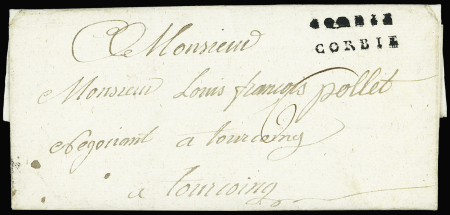 CORBIE
CORBIE
Monsieur
Monsieur Louis françois pollet
Negociant a tourcoing
a tourcoing